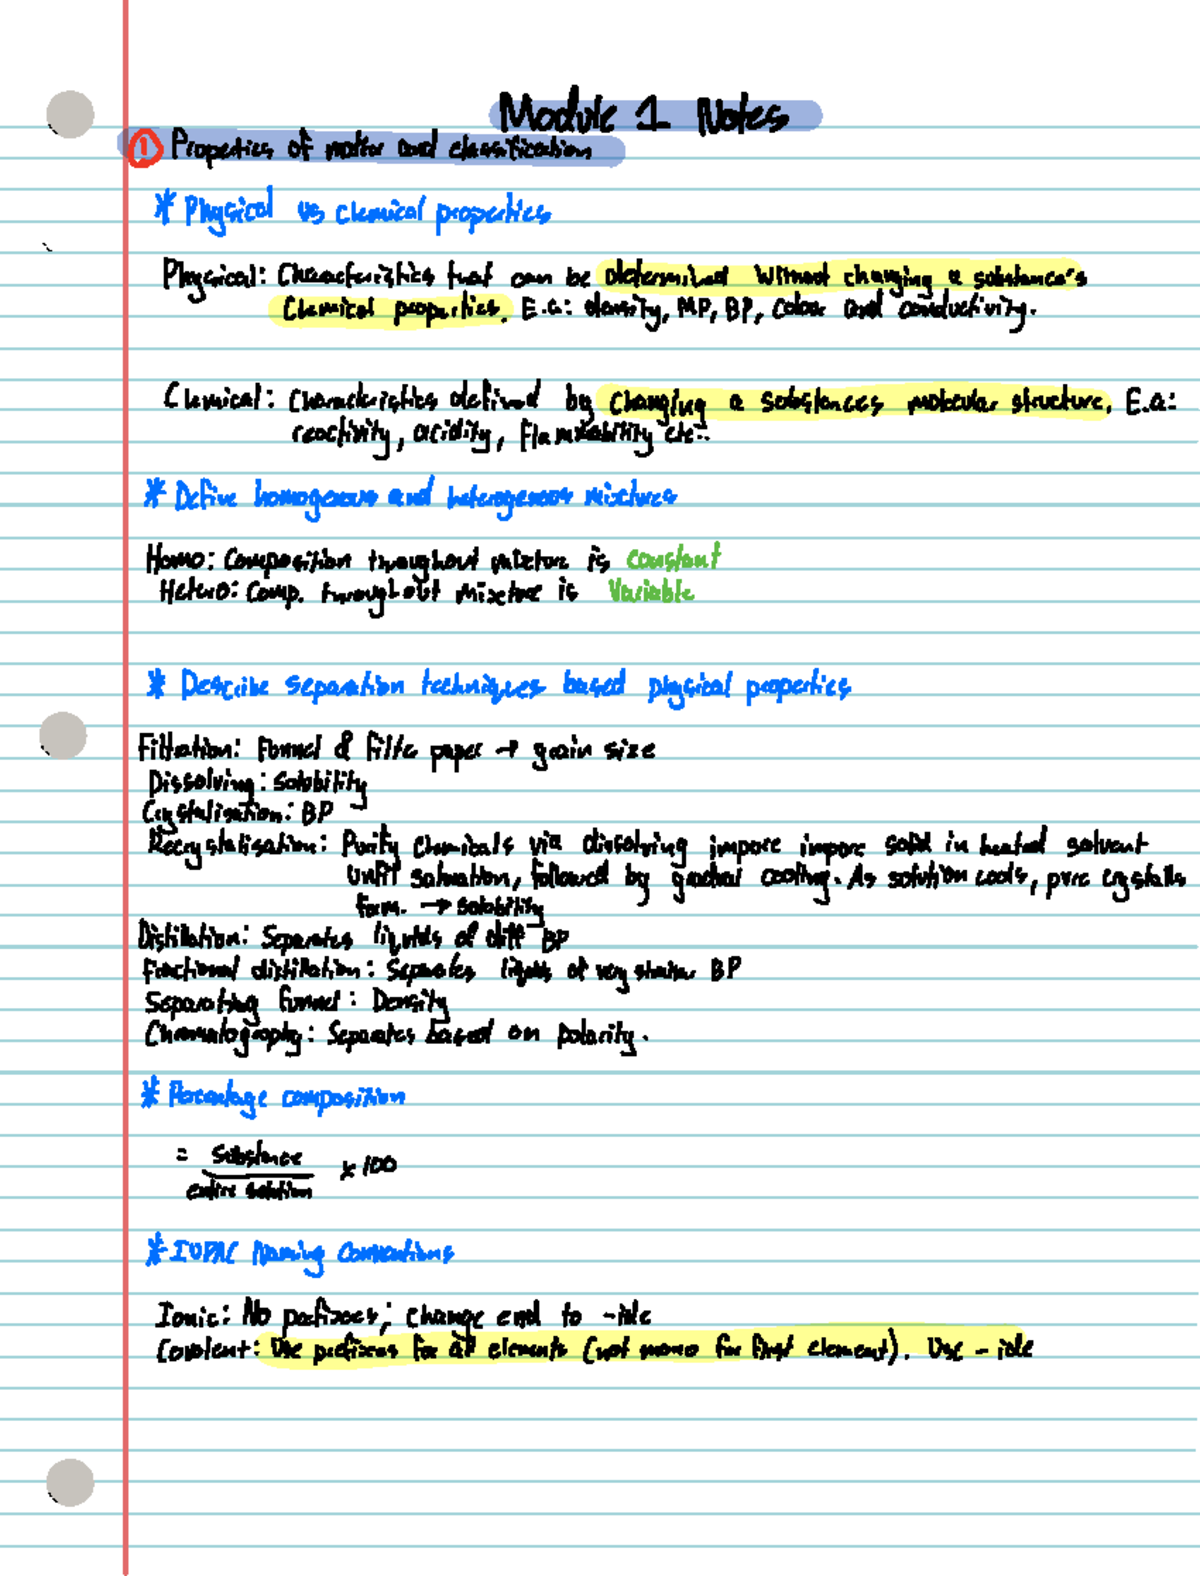 Module 1 Notes
① Properties of matter and classification
* Physical vs chemical properties
Physical: Characteristics that can be determined without changing a substance's
Chemical properties. E.G: density, MP, BP, colour and conductivity.
Chemical: Characteristics defined by changing a substances molecular structure. E.G:
reactivity, acidity, flammability etc..
* Define homogenous and heterogenous mixtures
Homo: Composition throughout mixture is constant
Hetero: Comp. throughout mixture is variable
* Describe separation techniques based physical properties
Filtration: Funnel & filter paper → grain size
Dissolving: solubility
Crystalisation: BP
Recrystalisation: Purify chemicals via dissolving impure impure solid in heated solvent
until saturation, followed by gradual cooling. As solution cools, pure crystals
form. → solubility
Distillation: Separates liquids of diff BP
Fractional distillation: Separates liquids of very similar BP
Separating funnel: Density
Chromatography: Separates based on polarity.
* Percentage composition
= substance
entire solution x 100
* IUPAC Naming Conventions
Ionic: No prefixes; change end to -ide
Covalent: Use prefixes for all elements (not mono for first element). Use -ide